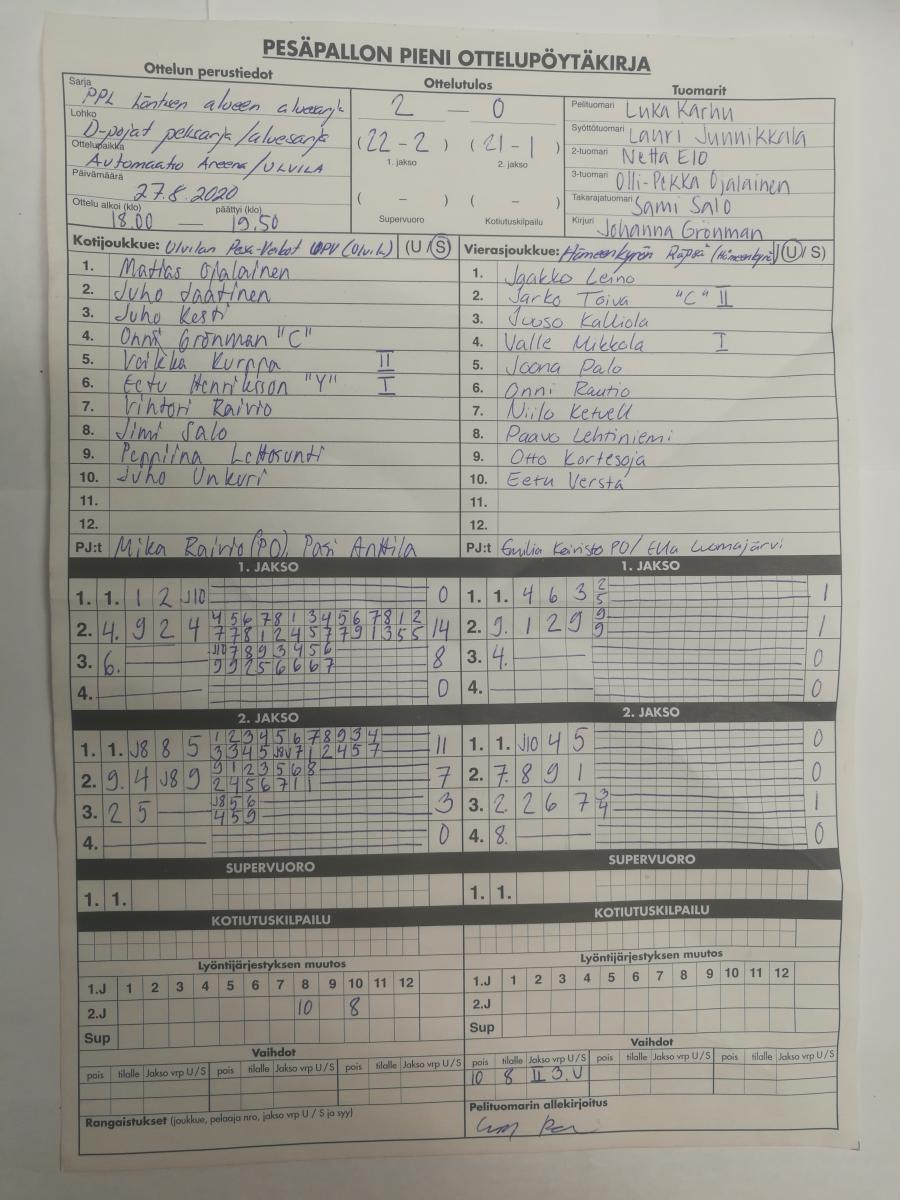 PESÄPALLON PIENI OTTELUPÖYTÄKIRJA
Ottelun perustiedot
Ottelutulos
Tuomarit
Sarja
PPL Läntisen alueen aluesarja
Lohko
D-pojat perussarja/aluesarja
Ottelupaikka
Automaatio Areena/ULVILA
Päivämäärä
27.8.2020
Ottelu alkoi (klo) päättyi (klo)
18.00 — 19.50
2 — 0
(22 - 2) (21 - 1)
1. jakso 2. jakso
( - ) ( - )
Supervuoro Kotiutuskilpailu
Pelituomari Luka Karhu
Syöttötuomari Lauri Junnikkala
2-tuomari Netta Elo
3-tuomari Olli-Pekka Ojalainen
Takarajatuomari Sami Salo
Kirjuri Johanna Grönman
Kotijoukkue: Ulvilan Pesä-Veikot UPV (Ulvila) (U/S)
1. Mattas Ojalainen
2. Juho Jaatinen
3. Juho Kesti
4. Onni Grönman "C"
5. Voikka Kurppa II
6. Eetu Henriksson "Y" I
7. Vihtori Raivio
8. Jimi Salo
9. Penniina Lettosunti
10. Juho Unkuri
11.
12.
PJ:t Mika Raivio (PO), Pasi Anttila
Vierasjoukkue: Hämeenkyrön Räpsä (Hämeenkyrö) (U/S)
1. Jaakko Leino
2. Jarko Toiva "C" II
3. Juuso Kalliola
4. Valle Mikkola I
5. Joona Palo
6. Onni Rautio
7. Niilo Ketvell
8. Paavo Lehtiniemi
9. Otto Kortesoja
10. Eetu Versta
11.
12.
PJ:t Emilia Keiristo PO/ Ella Luomajärvi
1. JAKSO
1. 1. 1 2 J10 0
2. 4. 9 2 4 4 5 6 7 8 1 3 4 5 6 7 8 1 2 14
7 7 8 1 2 4 5 7 7 9 1 3 5 5
3. 6. J10 7 8 9 3 4 5 6 8
9 9 2 5 6 6 6 7
4. 0
1. JAKSO
1. 1. 4 6 3 2 1
5
2. 9. 1 2 9 9 1
9
3. 4. 0
4. 0
2. JAKSO
1. 1. J8 8 5 1 2 3 4 5 6 7 8 9 3 4 11
3 3 4 5 J8V 7 1 2 4 5 7
2. 9. 4 J8 9 9 1 2 3 5 6 8 7
2 4 5 6 7 1 1
3. 2 5 J8 5 6 3
4 5 9
4. 0
2. JAKSO
1. 1. J10 4 5 0
2. 7. 8 9 1 0
3. 2. 2 6 7 3 1
4
4. 8. 0
SUPERVUORO
1. 1.
SUPERVUORO
1. 1.
KOTIUTUSKILPAILU
KOTIUTUSKILPAILU
Lyöntijärjestyksen muutos
1.J 1 2 3 4 5 6 7 8 9 10 11 12
2.J 10 8
Sup
Lyöntijärjestyksen muutos
1.J 1 2 3 4 5 6 7 8 9 10 11 12
2.J
Sup
Vaihdot
pois tilalle Jakso vrp U/S pois tilalle Jakso vrp U/S pois tilalle Jakso vrp U/S
Vaihdot
pois tilalle Jakso vrp U/S pois tilalle Jakso vrp U/S pois tilalle Jakso vrp U/S
10 8 II 3. U
Rangaistukset (joukkue, pelaaja nro, jakso vrp U / S ja syy)
Pelituomarin allekirjoitus